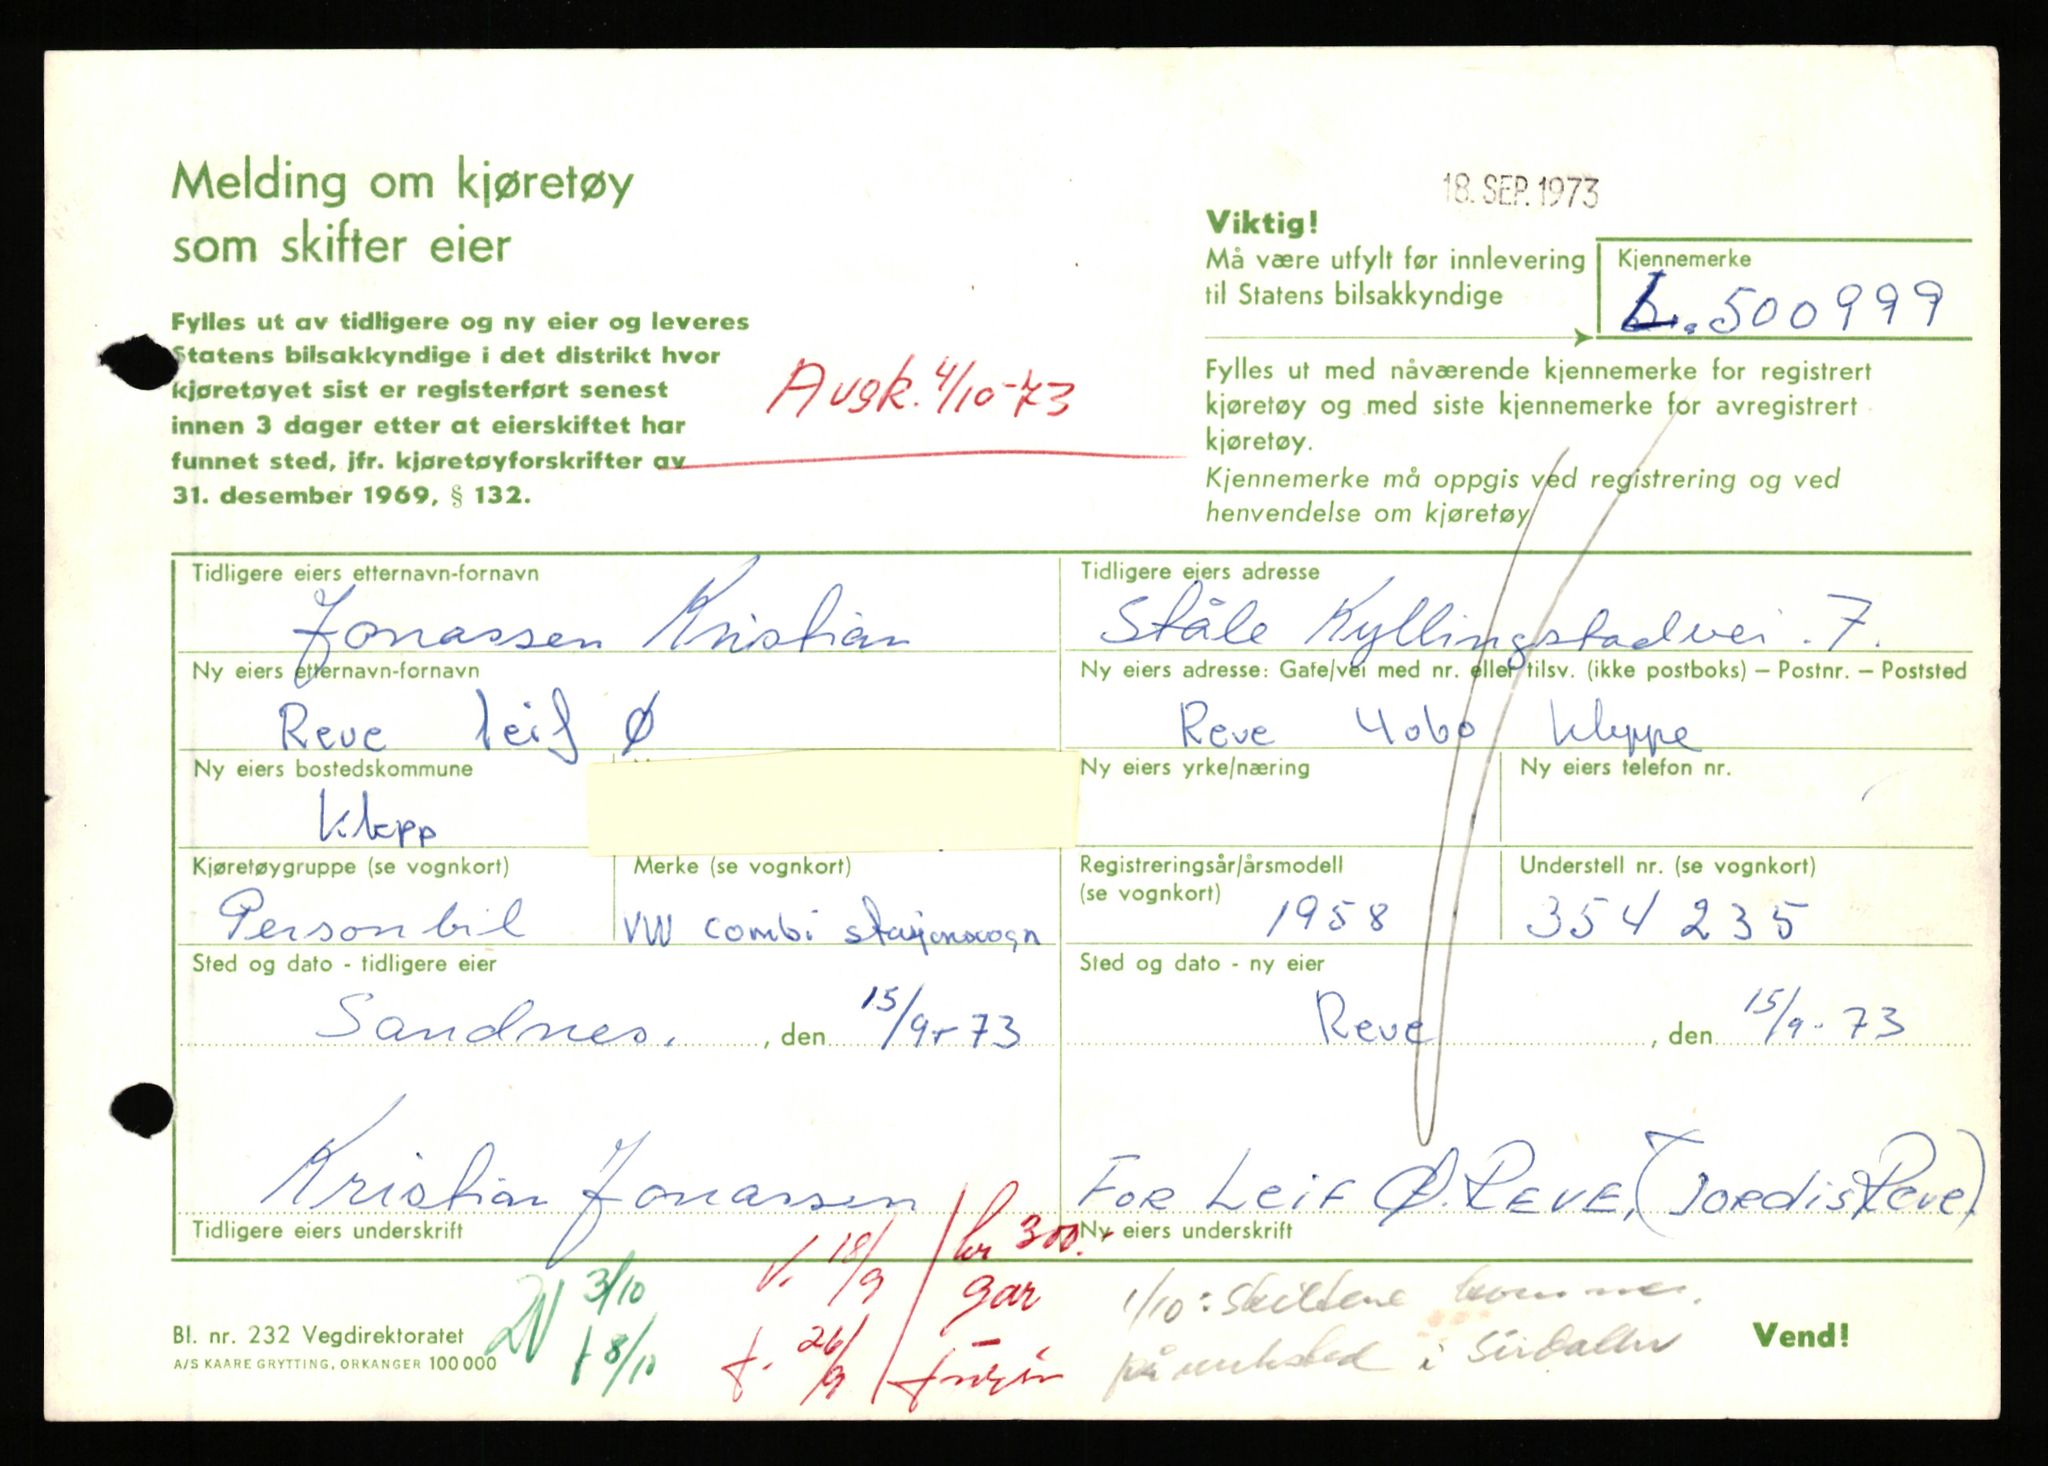 Melding om kjøretøy
som skifter eier
18. SEP. 1973
Viktig!
Må være utfylt før innlevering
til Statens bilsakkyndige
Kjennemerke
L. 500999
Fylles ut av tidligere og ny eier og leveres
Statens bilsakkyndige i det distrikt hvor
kjøretøyet sist er registerført senest
innen 3 dager etter at eierskiftet har
funnet sted, jfr. kjøretøyforskrifter av
31. desember 1969, § 132.
Avgk. 4/10-73
Fylles ut med nåværende kjennemerke for registrert
kjøretøy og med siste kjennemerke for avregistrert
kjøretøy.
Kjennemerke må oppgis ved registrering og ved
henvendelse om kjøretøy
Tidligere eiers etternavn-fornavn
Jonassen Kristian
Tidligere eiers adresse
Ståle Kyllingstadvei. 7.
Ny eiers etternavn-fornavn
Reve Leif Ø
Ny eiers adresse: Gate/vei med nr. eller tilsv. (ikke postboks) – Postnr. – Poststed
Reve 4060 Kleppe
Ny eiers bostedskommune
Klepp
Ny eiers yrke/næring
Ny eiers telefon nr.
Kjøretøygruppe (se vognkort)
Personbil
Merke (se vognkort)
VW combi stasjonsvogn
Registreringsår/årsmodell
(se vognkort)
1958
Understell nr. (se vognkort)
354 235
Sted og dato - tidligere eier
Sandnes. , den 15/9-73
Sted og dato - ny eier
Reve , den 15/9-73
Kristian Jonassen
Tidligere eiers underskrift
For Leif Ø. Reve, (Jordis Reve).
Ny eiers underskrift
Bl. nr. 232 Vegdirektoratet
A/S KAARE GRYTTING, ORKANGER 100 000
3/10
8/10
V. 18/9
26/9
kr 300.-
gar
1/10: Skiltene kommer.
på verksted i Sirdalen
Vend!